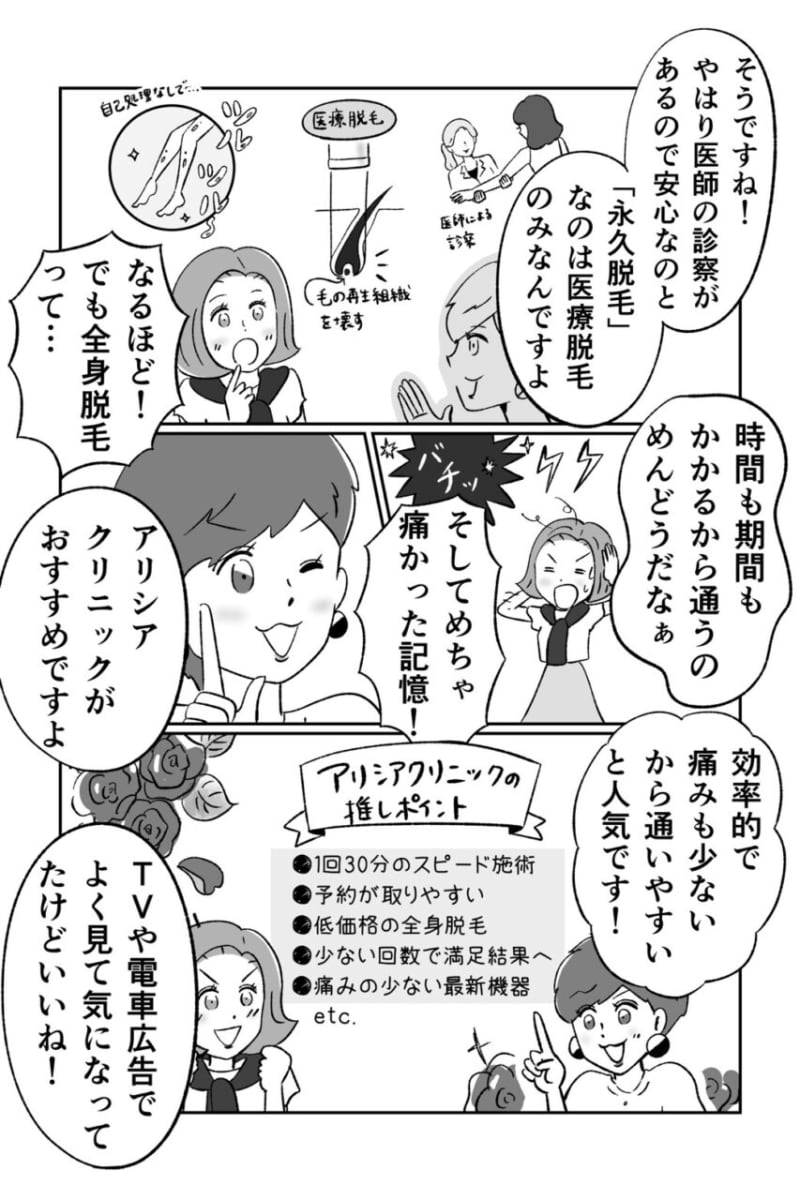 そうですね！
やはり医師の診察が
あるので安心なのと
「永久脱毛」
なのは医療脱毛
のみなんですよ
医師による
診察
医療脱毛
毛の再生組織
を壊す
自己処理なしで…
なるほど！
でも全身脱毛
って…
時間も期間も
かかるから通うの
めんどうだなぁ
バチッ
そしてめちゃ
痛かった記憶！
アリシア
クリニックが
おすすめですよ
効率的で
痛みも少ない
から通いやすい
と人気です！
アリシアクリニックの
推しポイント
●1回30分のスピード施術
●予約が取りやすい
●低価格の全身脱毛
●少ない回数で満足結果へ
●痛みの少ない最新機器
etc.
TVや電車広告で
よく見て気になって
たけどいいね！